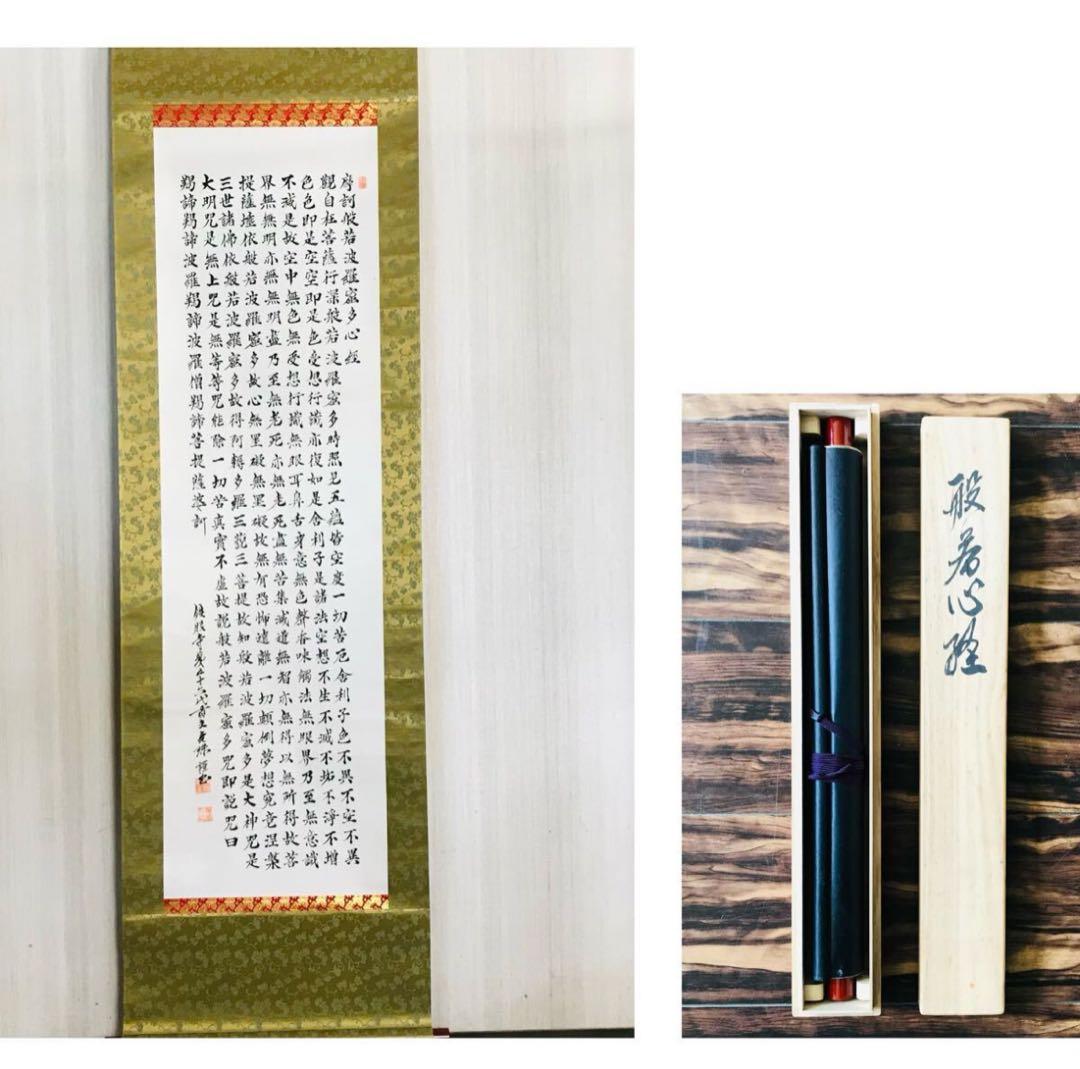 摩訶般若波羅蜜多心経
觀自在菩薩行深般若波羅蜜多時照見五蘊皆空度一切苦厄舍利子色不異不空不異
色色即是空空即是色受想行識亦復如是舍利子是諸法空想不生不滅不垢不淨不增
不減是故空中無色無受想行識無眼耳鼻舌身意無色聲香味觸法無眼界乃至無意識
界無無明亦無無明盡乃至無老死亦無老死盡無苦集滅道無智亦無得以無所得故菩
提薩埵依般若波羅蜜多故心無罣礙無罣礙故無有恐怖遠離一切顛倒夢想究竟涅槃
三世諸佛依般若波羅蜜多故得阿耨多羅三藐三菩提故知般若波羅蜜多是大神咒是
大明咒是無上咒是無等等咒能除一切苦真實不虛故說般若波羅蜜多咒即說咒曰
羯諦羯諦波羅羯諦波羅僧羯諦菩提薩婆訶
般若心経